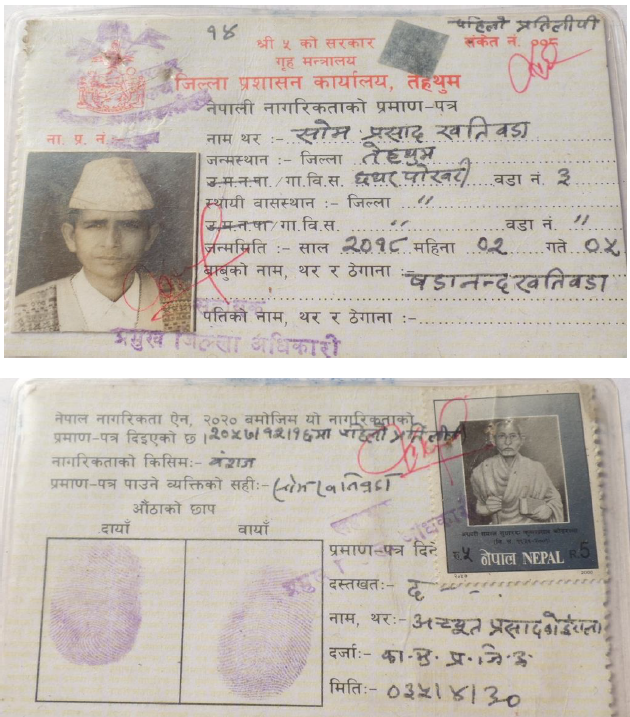 १४
पहिलो प्रतिलीपी
श्री ५ को सरकार
संकेत नं. ००८
गृह मन्त्रालय
जिल्ला प्रशासन कार्यालय, तेह्रथुम
नेपाली नागरिकताको प्रमाण-पत्र
ना. प्र. नं.
नाम थर :- सोम प्रसाद खतिवडा
जन्मस्थान :- जिल्ला तेह्रथुम
उ.म.न.पा./गा.वि.स. छथर पोखरी वडा नं. ३
स्थायी वासस्थान :- जिल्ला "
उ.म.न.पा/गा.वि.स. " वडा नं. "
जन्ममिति :- साल २०१८ महिना ०२ गते ०५
बाबुको नाम, थर र ठेगाना :- षडानन्द खतिवडा
पतिको नाम, थर र ठेगाना :-
प्रमुख जिल्ला अधिकारी
नेपाल नागरिकता ऐन, २०२० बमोजिम यो नागरिकताको
प्रमाण-पत्र दिइएको छ। २०५७/१२/१६मा पहिलो प्रतिलीपी
नागरिकताको किसिम:- वंशज
प्रमाण-पत्र पाउने व्यक्तिको सही:- सोम खतिवडा
औंठाको छाप
दायाँ बायाँ
प्रमाण-पत्र दिने
रु ५ नेपाल NEPAL R.5
दस्तखत:- द
नाम, थर:- अच्यूत प्रसाद कोईराला
दर्जा:- का. मु. प्र. जि. अ
मिति:- ०३५/४/३०